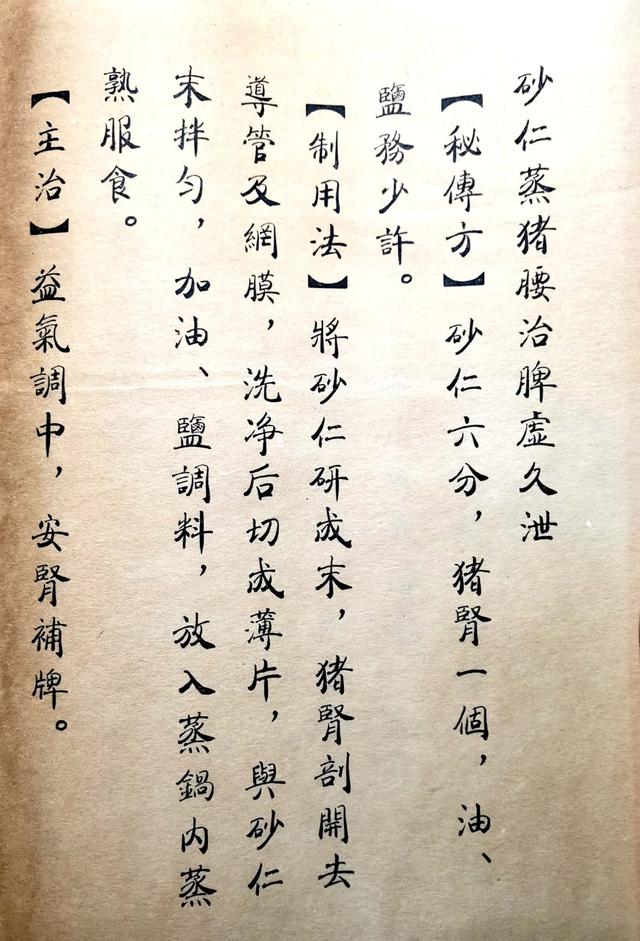 砂仁蒸猪腰治脾虛久泄
【秘傳方】砂仁六分，猪腎一個，油、
鹽務少許。
【制用法】將砂仁研成末，猪腎剖開去
導管及網膜，洗净后切成薄片，與砂仁
末拌匀，加油、鹽調料，放入蒸鍋内蒸
熟服食。
【主治】益氣調中，安腎補牌。